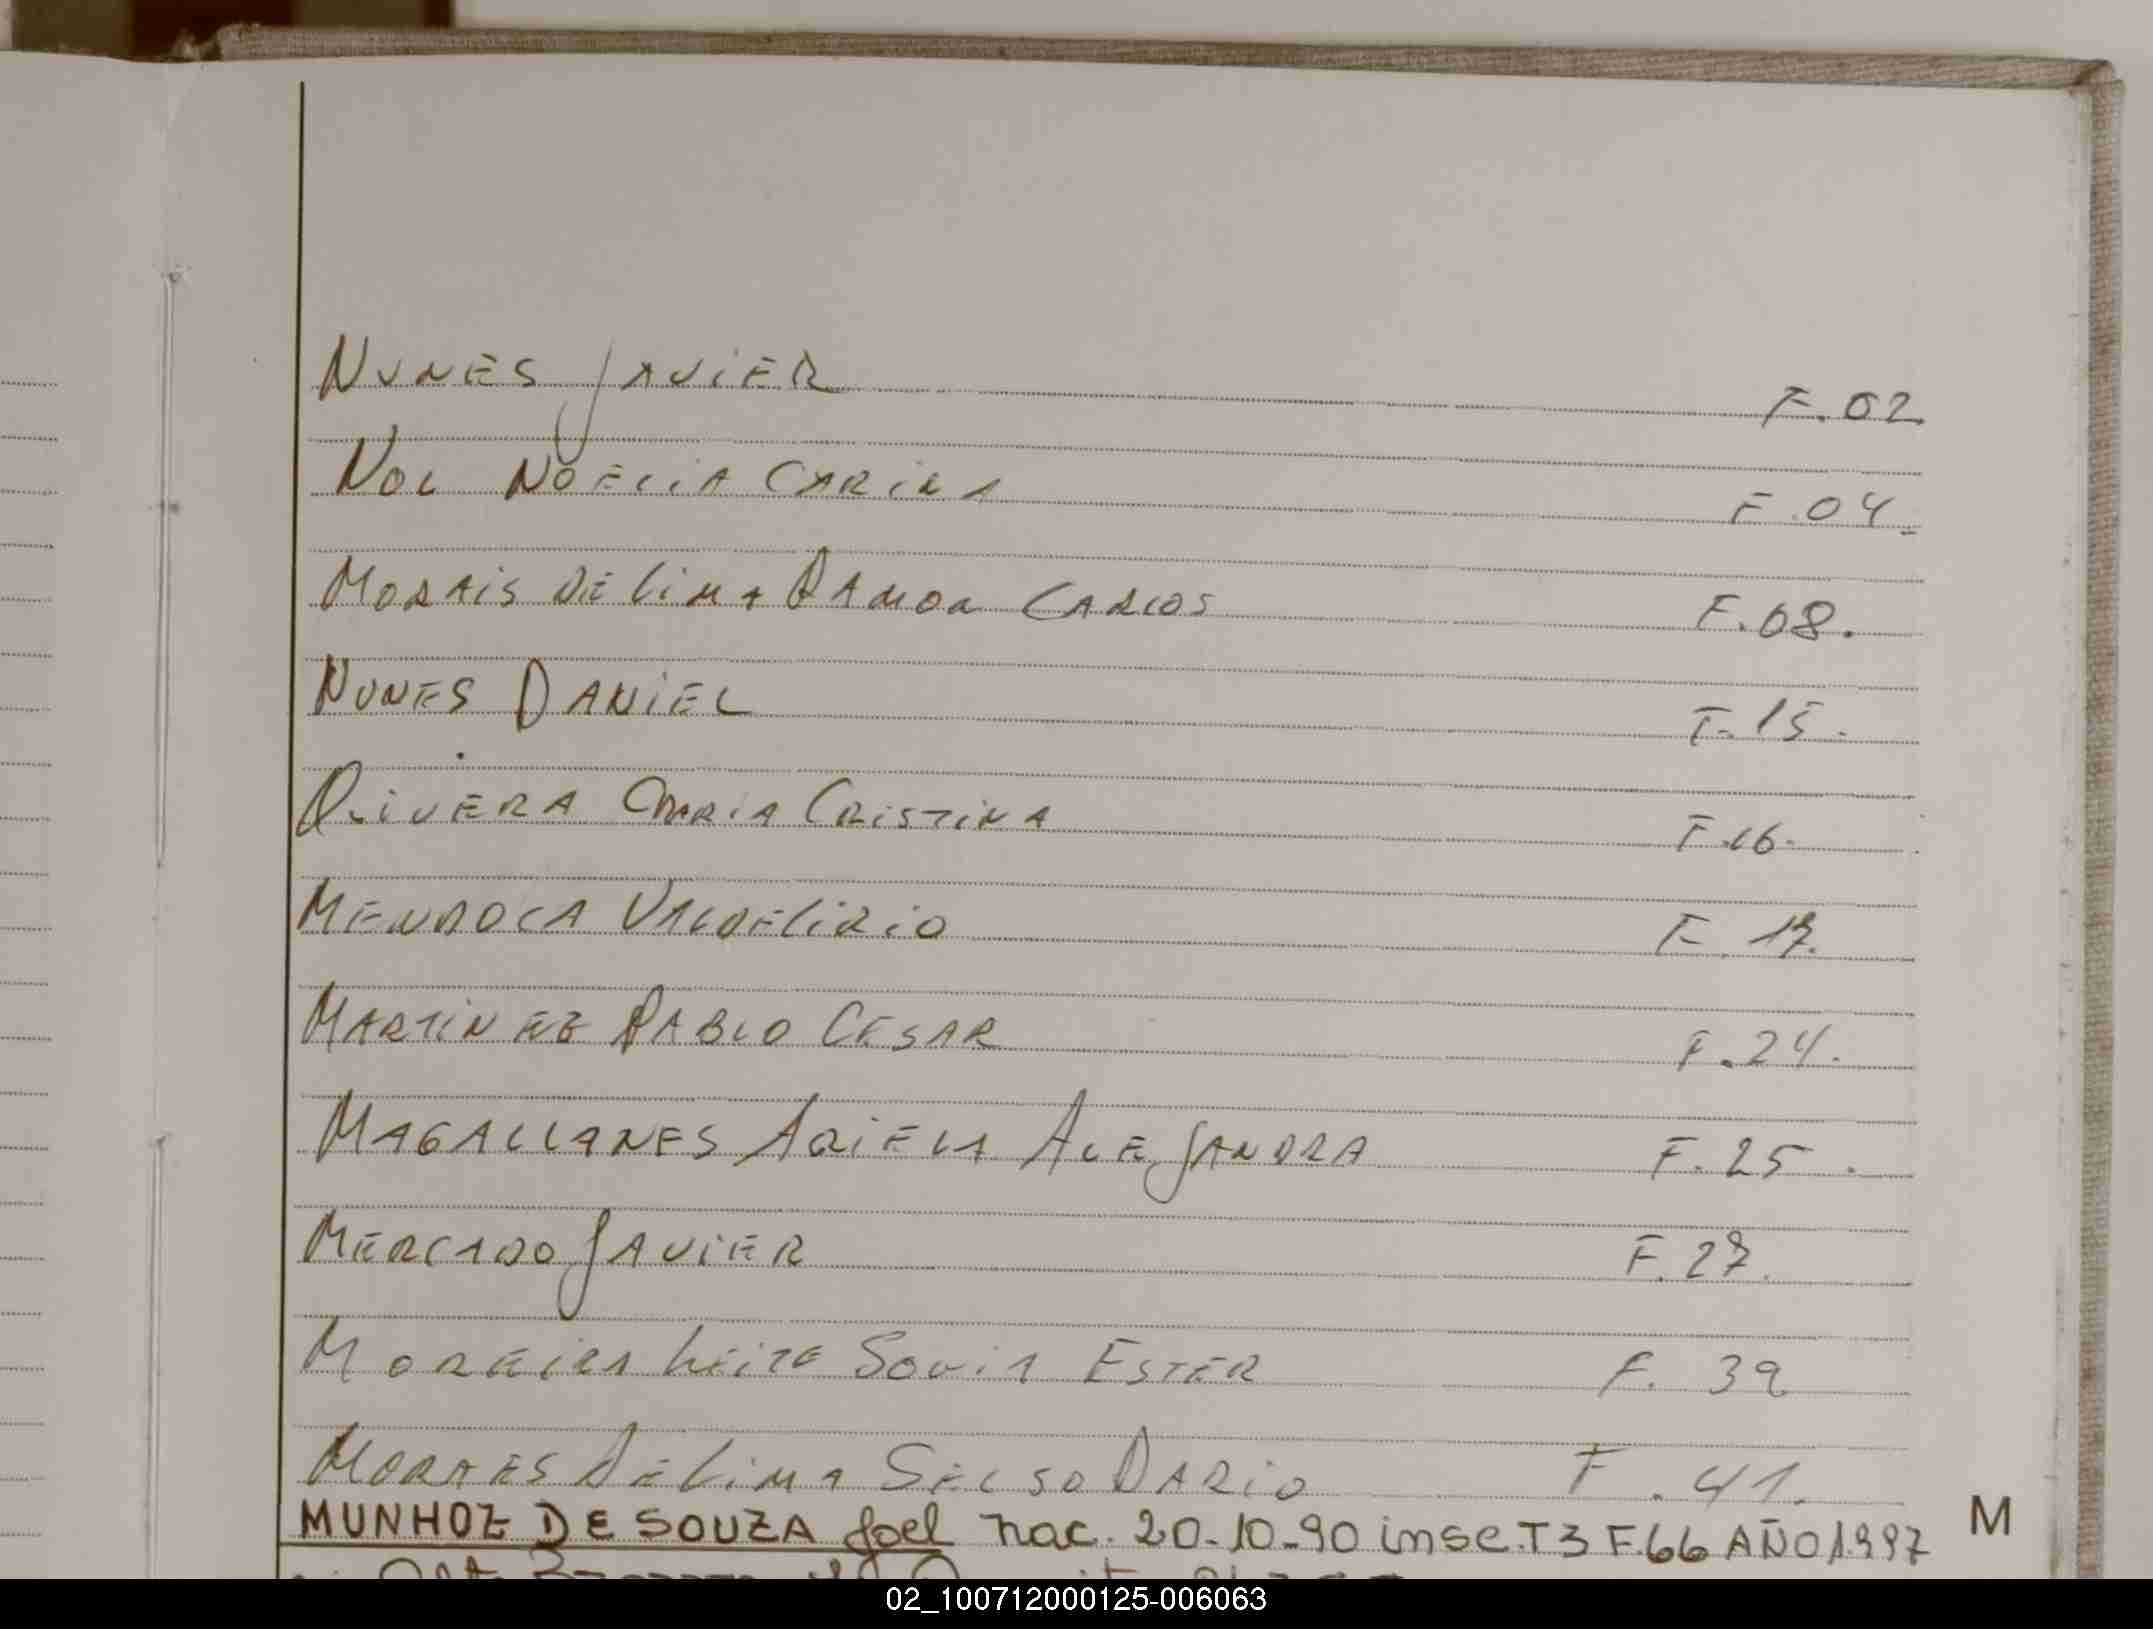 NUNES JAVIER F.02
NOL NOELIA CARINA F.04.
MORAIS DE LIMA RAMON CARLOS F.08.
NUNES DANIEL F.15.
OLIVERA MARIA CRISTINA F.16.
MENDOCA VALDELIRIO F 17.
MARTINEZ PABLO CESAR F.24.
MAGALLANES ARIELA ALEJANDRA F.25.
MERCADO JAVIER F.27.
MOREIRA LEITE SOVIA ESTER F. 39
MORAES DE LIMA SELSO DARIO F.41.
MUNHOZ DE SOUZA Joel nac. 20-10-90 insc. T3 F.66 AÑO 1997
M
02_100712000125-006063